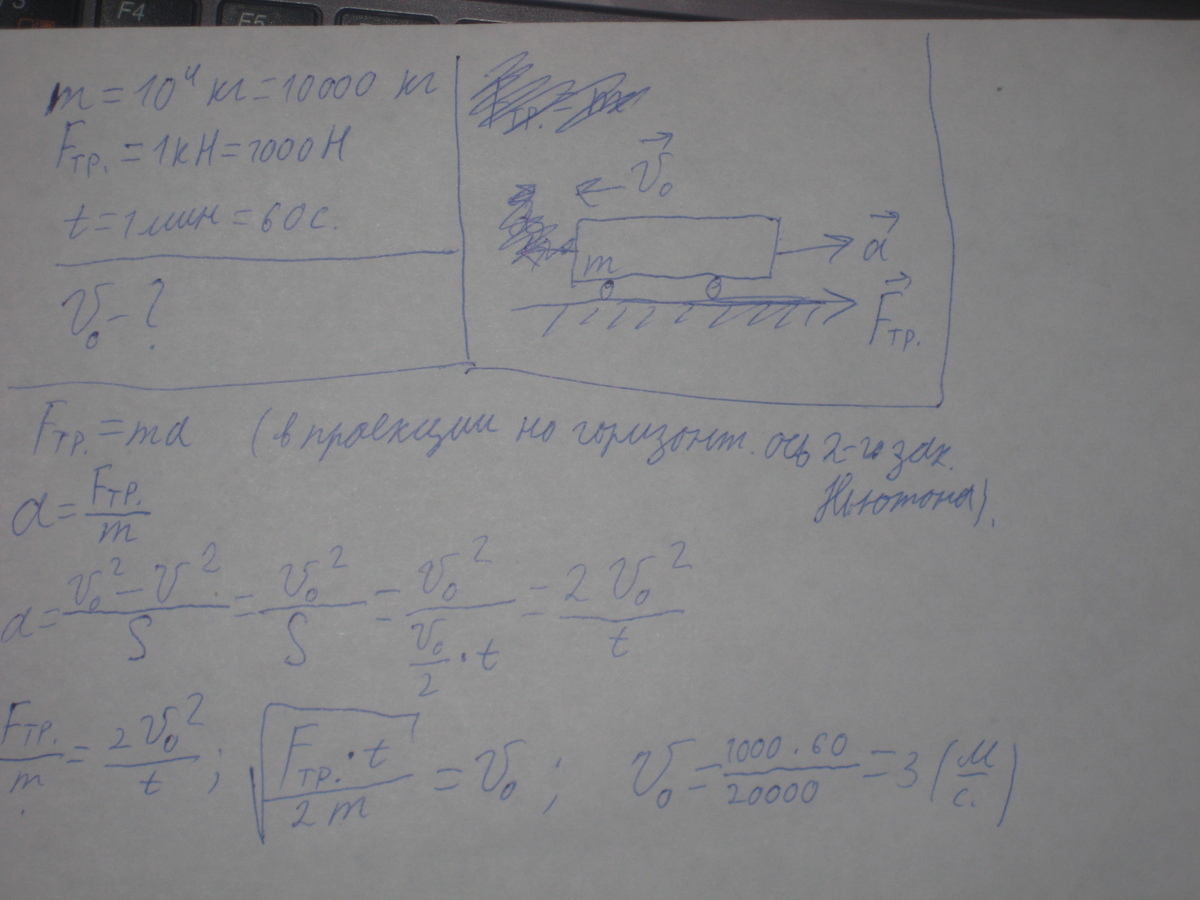 F4
F5
m = 10⁴ кг = 10000 кг
Fтр. = 1кН = 1000Н
t = 1 мин = 60 с.
v₀ - ?
v₀
m
a
Fтр.
Fтр. = ma (в проекции на горизонт. ось 2-го зак. Ньютона).
a = Fтр./m
a = (v₀² - v²)/S = v₀²/S = v₀²/(v₀/2 · t) = 2v₀²/t
Fтр./m = 2v₀²/t; √(Fтр. · t/2m) = v₀; v₀ = 1000 · 60/20000 = 3 (м/с.)